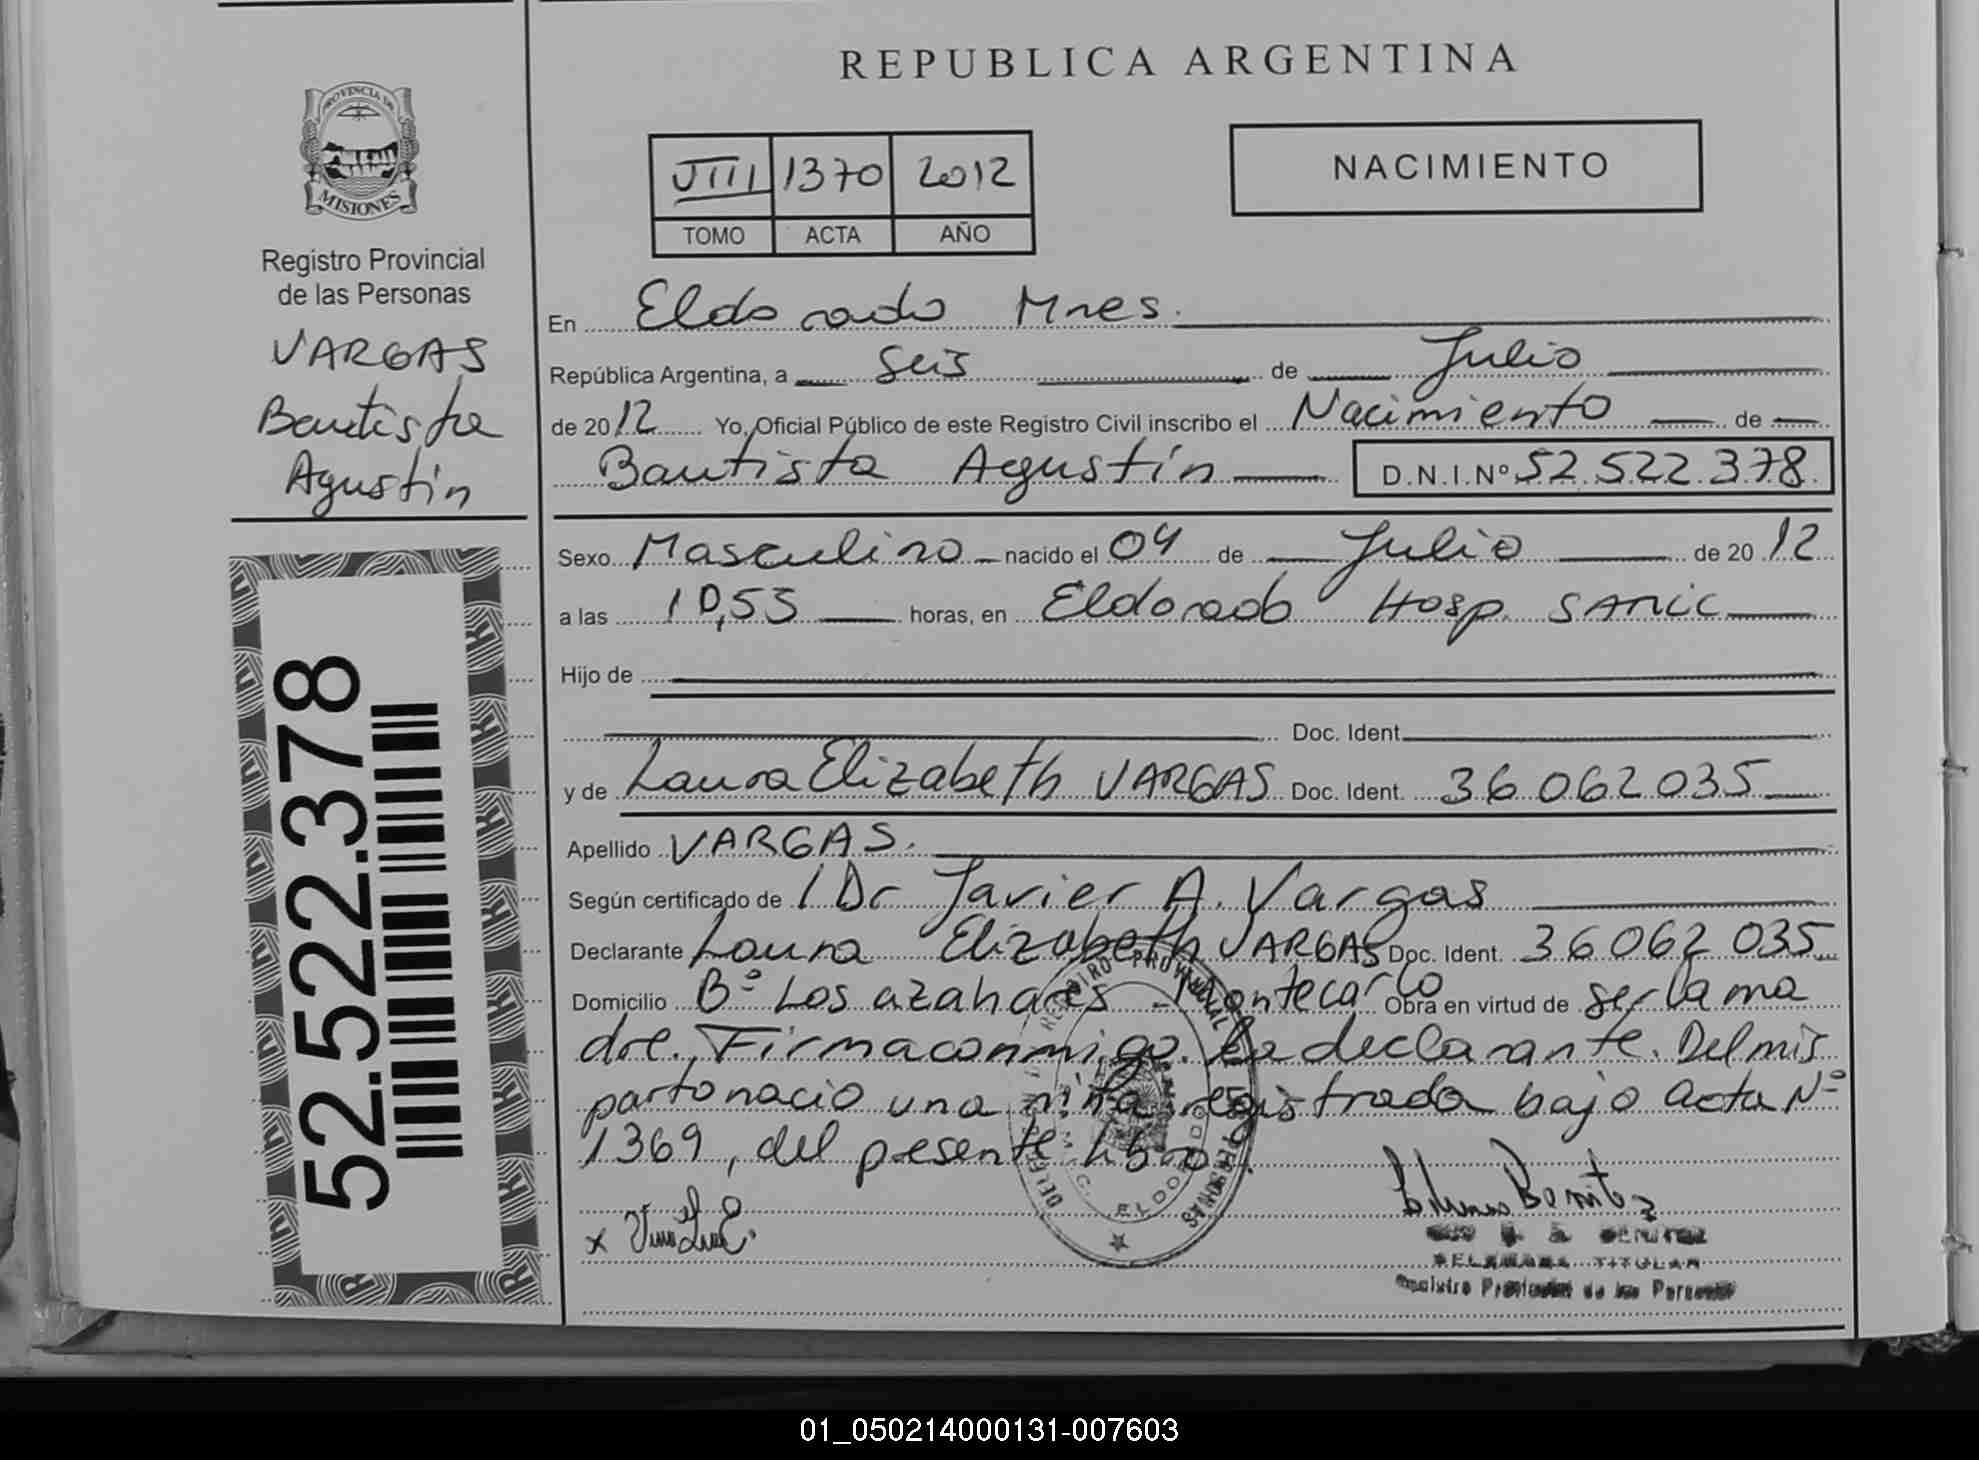 REPUBLICA ARGENTINA
PROVINCIA DE
MISIONES
Registro Provincial
de las Personas
VARGAS
Bautista
Agustín
52.522.378
VIII 1370 2012
TOMO ACTA AÑO
NACIMIENTO
En Eldorado Mnes.
República Argentina, a Seis de Julio
de 2012 Yo, Oficial Público de este Registro Civil inscribo el Nacimiento de
Bautista Agustín D.N.I.Nº 52.522.378
Sexo Masculino nacido el 04 de Julio de 2012
a las 10,53 horas, en Eldorado Hosp. SAMIC
Hijo de
Doc. Ident.
y de Laura Elizabeth VARGAS Doc. Ident. 36 062 035
Apellido VARGAS.
Según certificado de / Dr Javier A. Vargas
Declarante Laura Elizabeth VARGAS Doc. Ident. 36062 035
Domicilio Bº Los azahares - Montecarlo Obra en virtud de ser la ma
dre. Firma conmigo. La declarante. Del mis
parto nacio una niña registrada bajo acta Nº
1369, del presente libro.
ELDORADO
x
Benitez
BENITEZ
TITULAR
Registro Provincial de las Personas
01_050214000131-007603